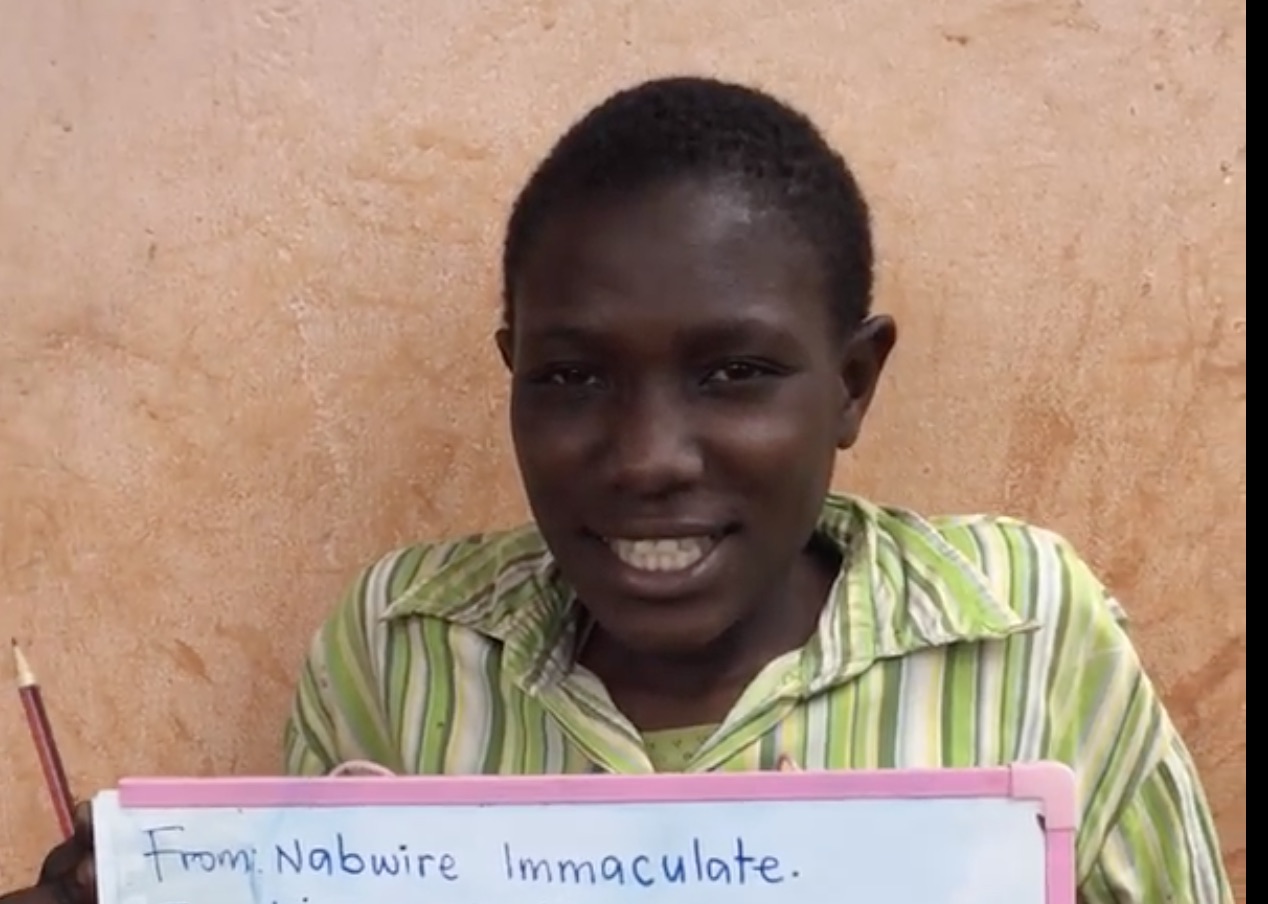 From: Nabwire Immaculate.